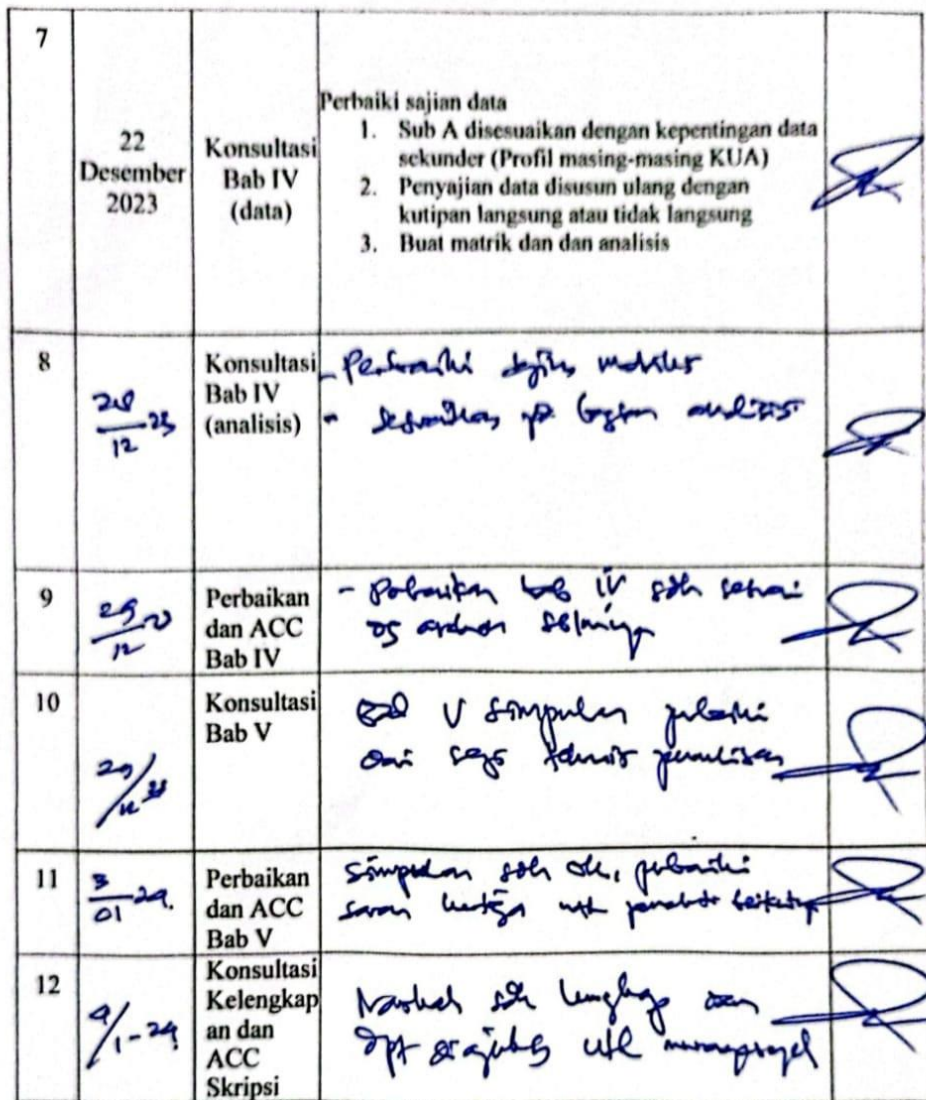 7
22
Desember
2023
Konsultasi
Bab IV
(data)
Perbaiki sajian data
1. Sub A disesuaikan dengan kepentingan data
sekunder (Profil masing-masing KUA)
2. Penyajian data disusun ulang dengan
kutipan langsung atau tidak langsung
3. Buat matrik dan dan analisis
8
28/12 23
Konsultasi
Bab IV
(analisis)
- Perbaiki
- bagian analisis
9
29/12 23
Perbaikan
dan ACC
Bab IV
- Perbaikan bab IV sdh sesuai
dg arahan
10
29/12 23
Konsultasi
Bab V
Bab V simpulan perbaiki
dari segi teknis penulisan
11
3/01-24.
Perbaikan
dan ACC
Bab V
Simpulan sdh ok, perbaiki
saran
12
9/1-24
Konsultasi
Kelengkap
an dan
ACC
Skripsi
Naskah sdh lengkap dan
dpt diajukan utk